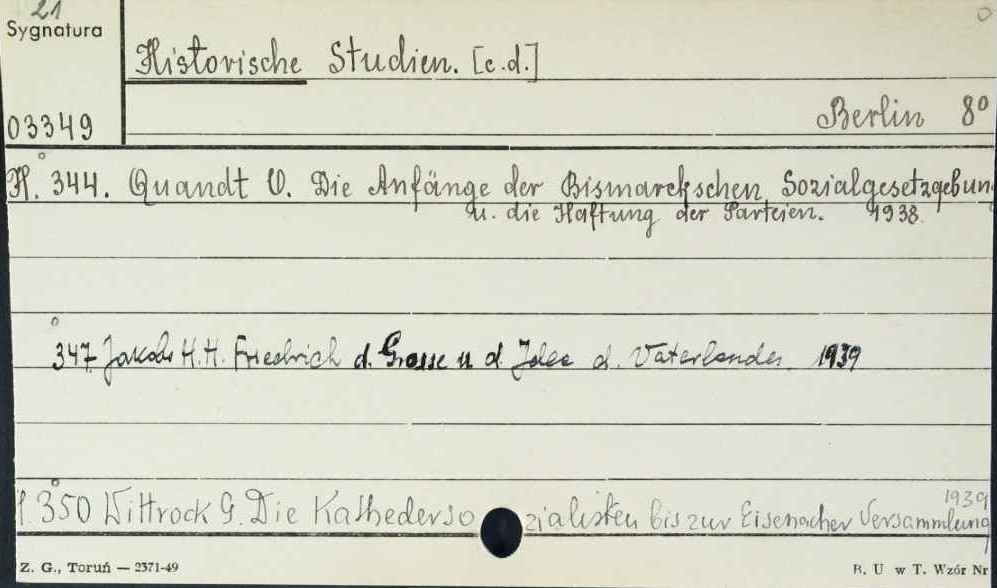 21
Sygnatura
Historische Studien. [c.d.]
Berlin 8°
03349
H. 344. Quandt O. Die Anfänge der Bismarckschen Sozialgesetzgebung
u. die Haftung der Parteien. 1938.
347 Jakobs H. H. Friedrich d. Grosse u d. Idee d. Vaterlandes. 1939
350 Wittrock G. Die Kathedersozialisten bis zur Eisenacher Versammlung
1939
Z. G., Toruń — 2371-49
B. U w T. Wzór Nr